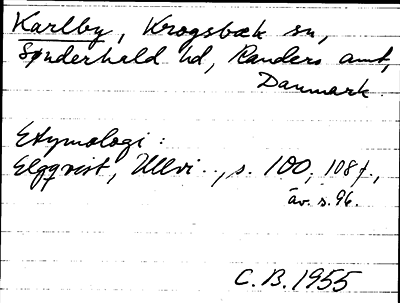 Karlby, Krogsbæk sn,
Sønderhald hd, Randers amt,
Danmark.
Etymologi:
Elgqvist, Ullvi., s. 100, 108f.,
äv. s. 96.
C.B. 1955